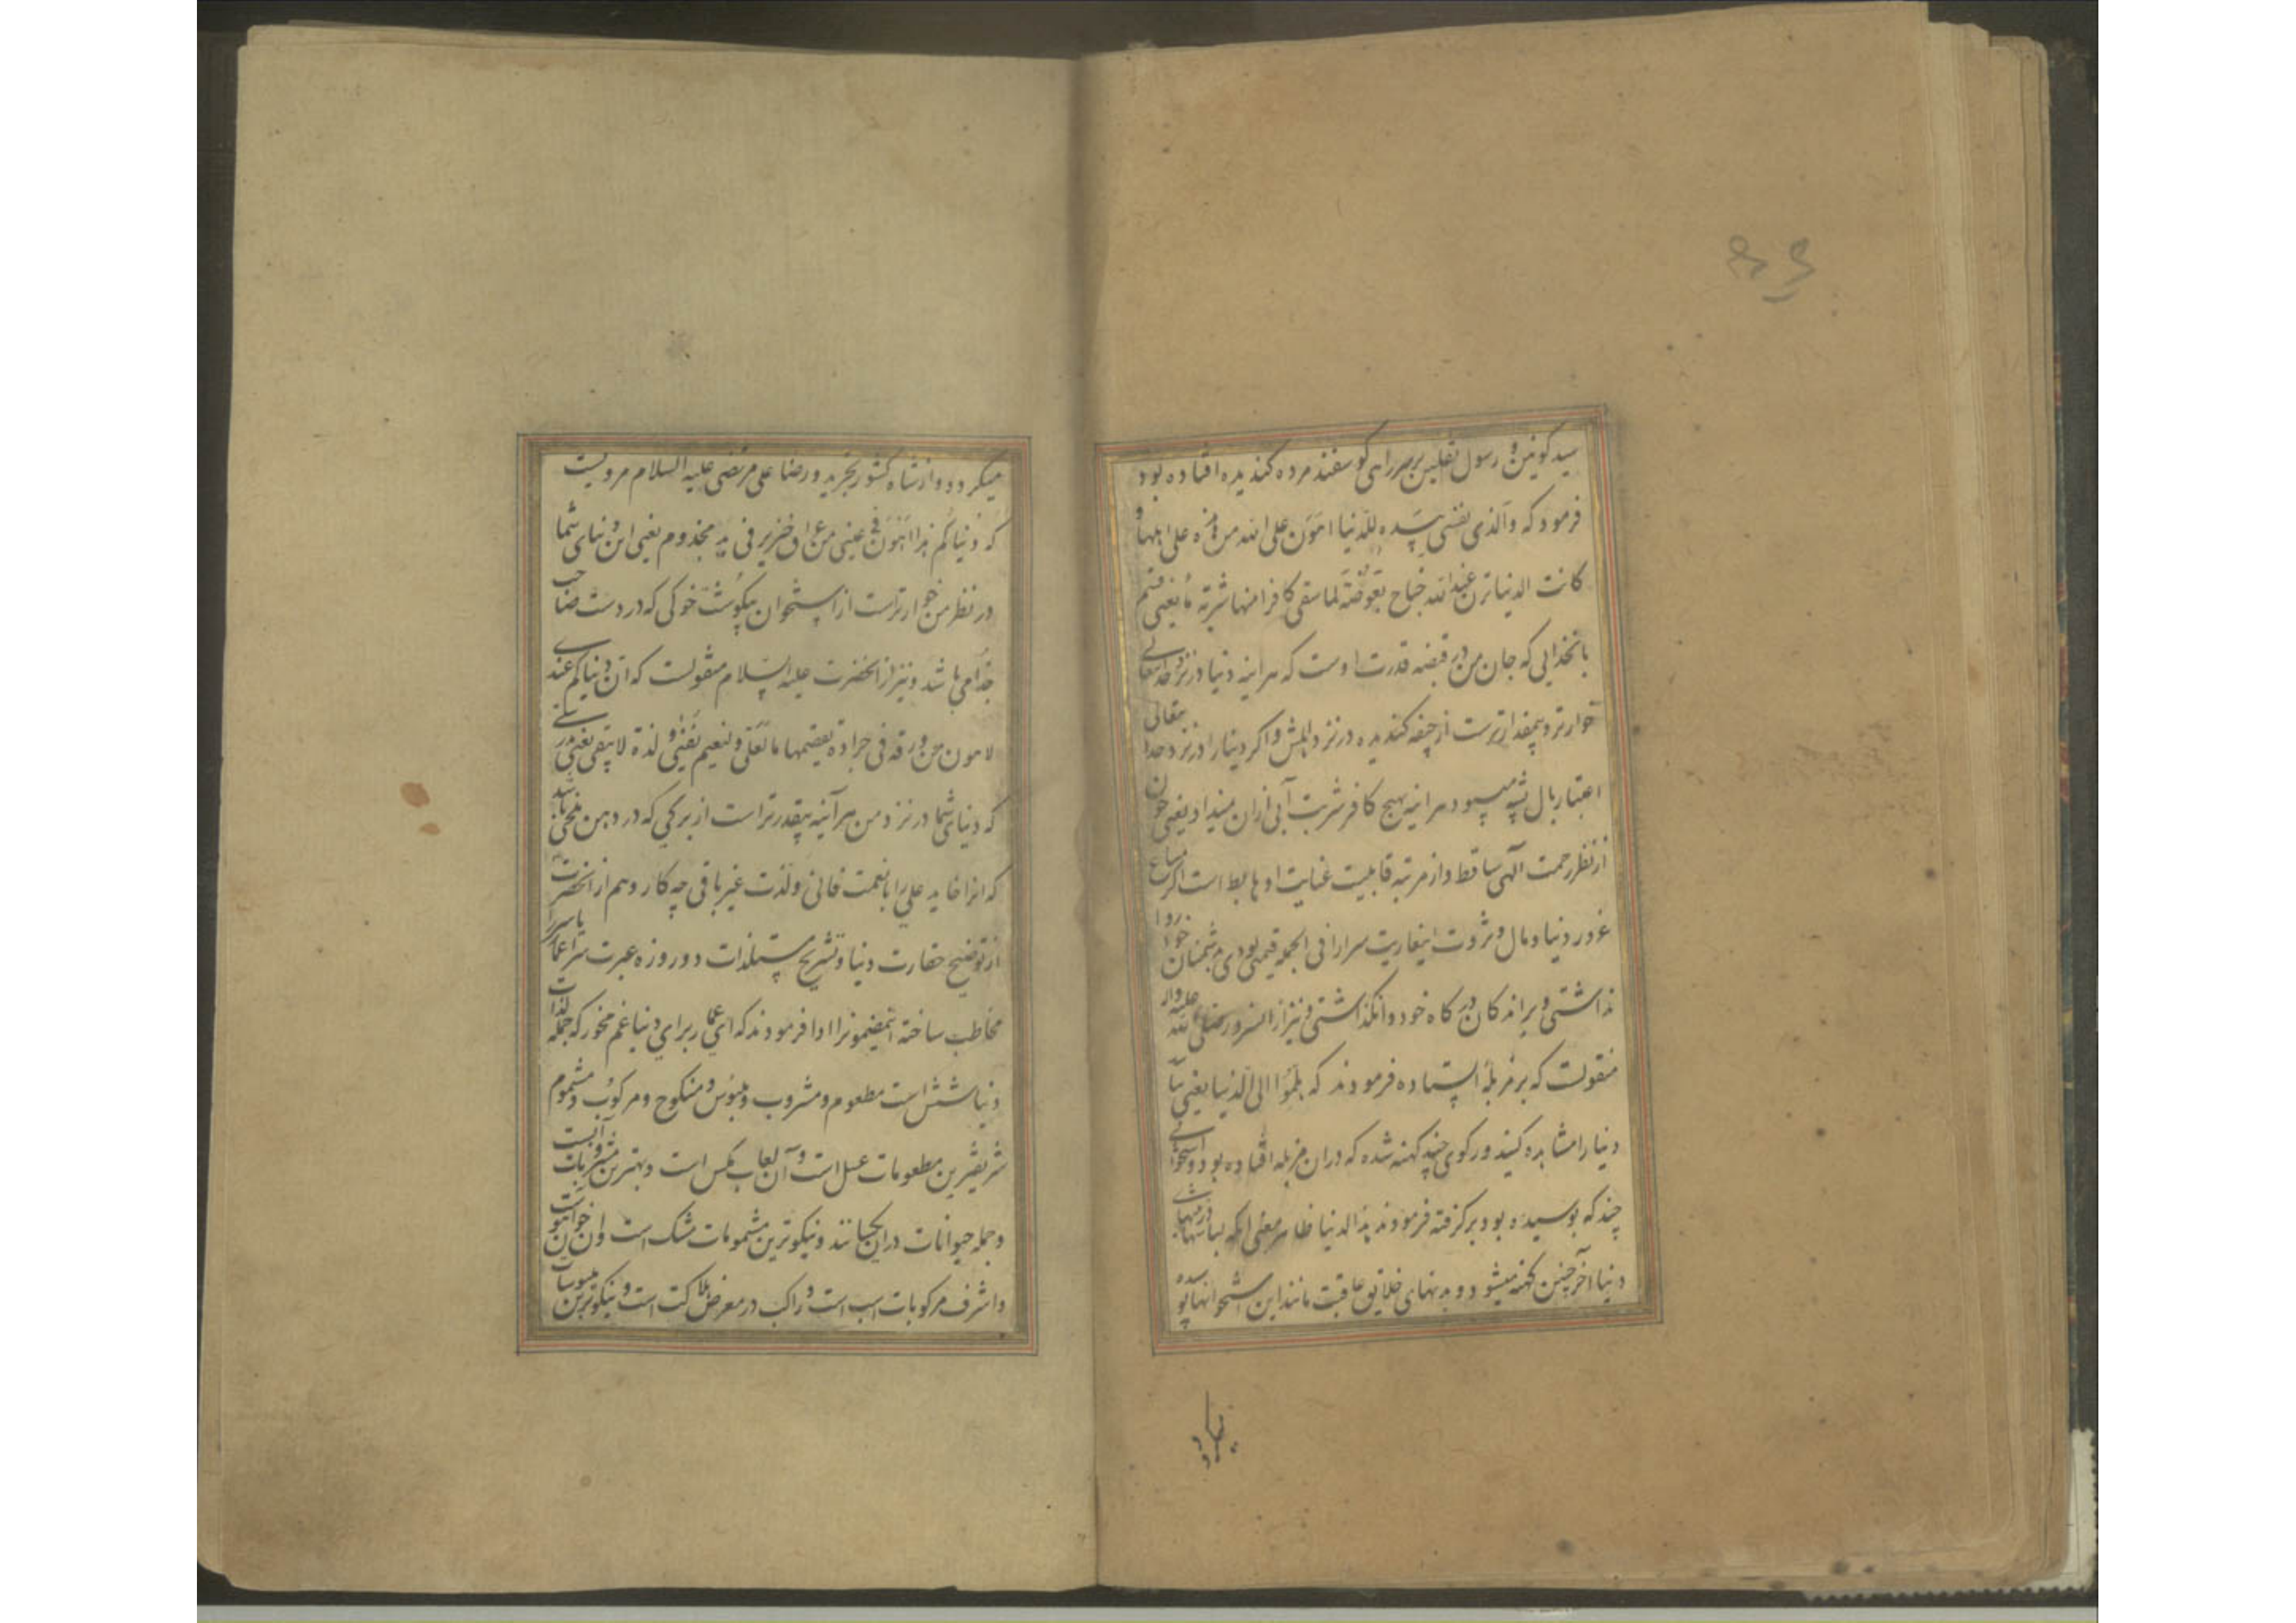 سید کونین و رسول ثقلین بر سر راهی گوسفند مرده گندیده افتاده بود
فرمود که والذی نفسی بیده للدنیا اهون علی الله من هذه علی اهلها و
کانت الدنیا تزن عند الله جناح بعوضة لما سقی کافرا منها شربة ماء یعنی قسم
بانخدایی که جان من در قبضه قدرت اوست که هر اینه دنیا در نزد خدایتعالی
خوارتر و بیمقدارترست از جیفه گندیده در نزد اهلش و اگر دنیا را در نزد خدا یتعالی
اعتبار بال پشه میبود هر اینه هیچ کافر شربت آبی از ان نمیداد یعنی چون
از نظر رحمت آلهی ساقط و از مرتبه قابلیت عنایت او هابط است اگر متاع
غرور دنیا و مال و ثروت اینعاریت سرا را فی الجمله قیمتی بودی بدشمنان خود روا
نداشتی و براندکان درگاه خود وانگذاشتی و نیز از انسرور صلی الله علیه و اله
منقولست که بر مزبلهٔ ایستاده فرمودند که هلموا الی الدنیا یعنی بیا
دنیا را مشاهده کنید و رکوی چند کهنه شده که دران مزبله افتاده بود و استخوانی
چند که پوسیده بود برگرفته فرمودند هذا الدنیا ظاهر معنی انکه لباسهای
دنیا آخر چنین کهنه میشود و بدنهای خلایق عاقبت مانند این استخوانها پوسیده
میگردد و از شاه کشور تجرید و رضا علی مرتضی علیه السلام مرویست
که دنیاکم هذا اهون فی عینی من عراق خنزیر فی ید مجذوم یعنی این دنیای شما
در نظر من خوارتر است از استخوان بیگوشت خوکی که در دست صاحب
جذامی باشد و نیز از انحضرت علیه السلام منقولست که ان دنیاکم عندی
لاهون من ورقة فی جرادة تقضمها ما لعلی و لنعیم یفنی و لذة لا تبقی یعنی
که دنیای شما در نزد من هر آینه بیقدرتر است از برگی که در دهن ملخی باشد
که انرا خاید علی را با نعمت فانی و لذت غیر باقی چه کار و هم از انحضرت
از توضیح حقارت دنیا و تشریح مستلذات دو روزه عبرت سرا عمار یاسر را
مخاطب ساخته اینمضمونرا ادا فرمودند که ای عمار برای دنیا غم مخور که جمله لذات
دنیا شش است مطعوم و مشروب و ملبوس و منکوح و مرکوب و مشموم
شریفترین مطعومات عسل است و آن لعاب مگس است و بهترین مشروبات آبست
و جمله حیوانات دران یکسانند و نیکوترین مشمومات مشک است و ان خون آهوست
و اشرف مرکوبات اسب است و راکب در معرض هلاکت است و نیکوترین ملبوسات